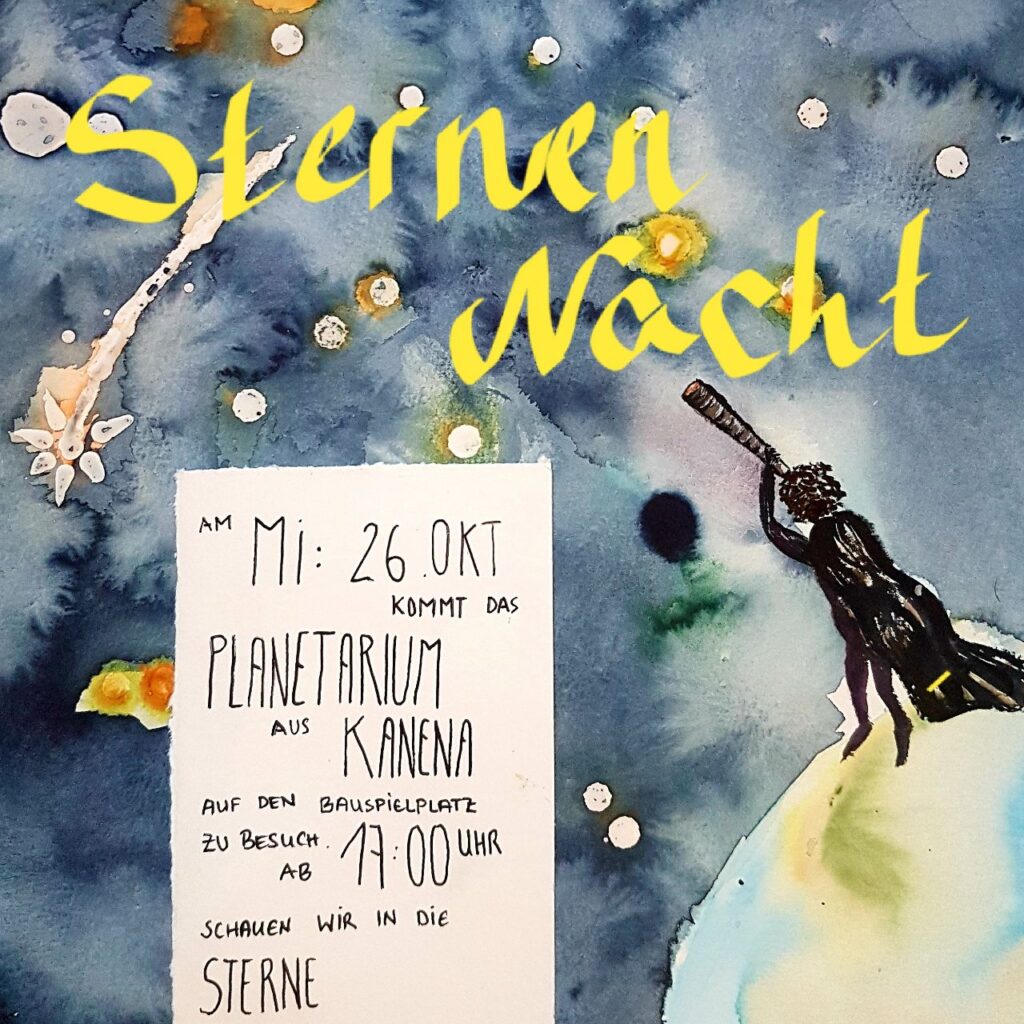 Sternen
Nacht
AM Mi: 26.OKT
KOMMT DAS
PLANETARIUM
AUS KANENA
AUF DEN BAUSPIELPLATZ
ZU BESUCH.
AB 17:00 UHR
SCHAUEN WIR IN DIE
STERNE